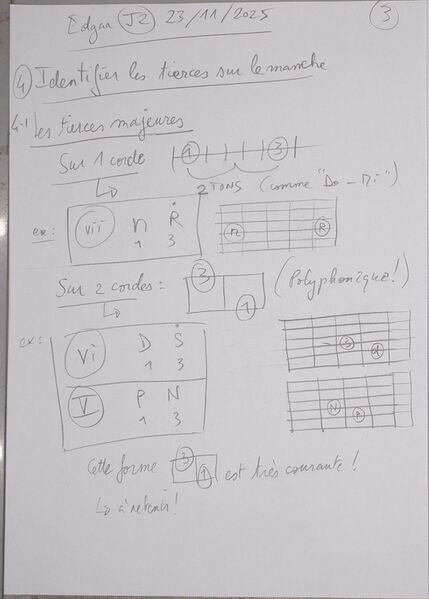 Edgar J2 23/11/2025 3
4 Identifier les tierces sur le manche
4-1 Les tierces majeures
Sur 1 corde 1 3
2 TONS (comme "Do - Mi")
ex: vii n R n R
1 3
Sur 2 cordes : 3 1 (Polyphonique!)
ex: vi D S S d
1 3
V P N N P
1 3
Cette forme 3 1 est très courante !
à retenir !